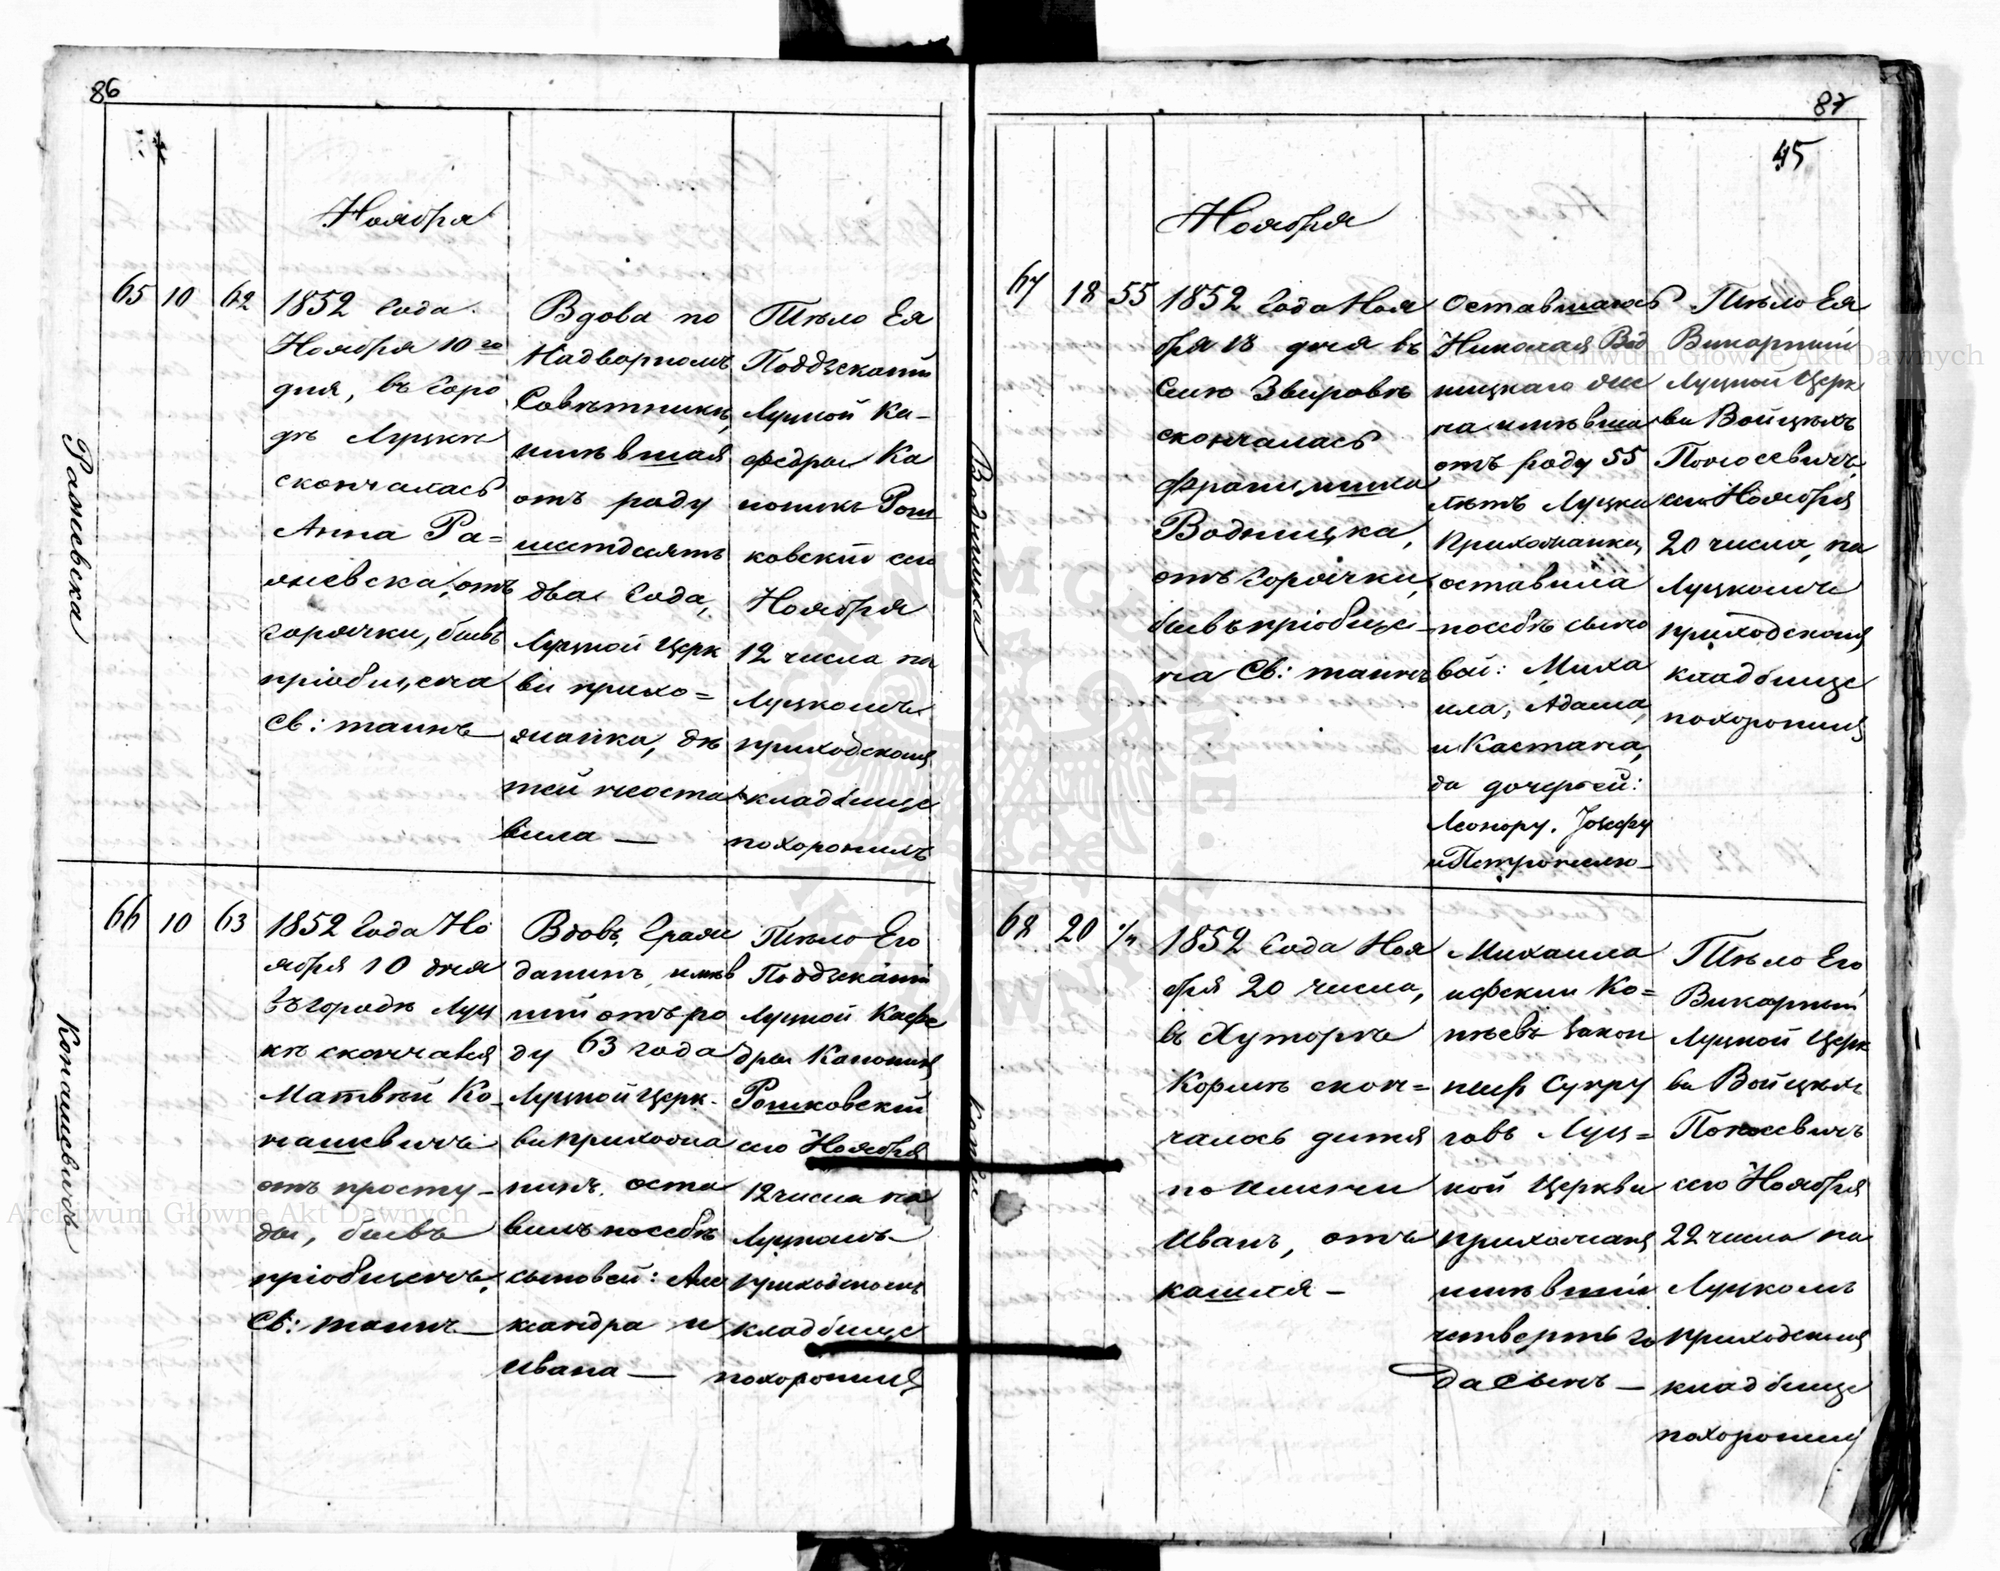 86
Ноября
Рамевска
65 10 62
1852 Года
Ноября 10го
дня, въ Горо
дѣ Луцкѣ
скончалась
Анна Ра=
мевска, отъ
горячки, бывъ
пріобщена
Св: таинъ
Вдова по
Надворномъ
Совѣтникѣ,
имѣвшая
отъ роду
шестдесятъ
два Года,
Луцкой Церк
ви прихо=
жанка, дѣ
тей неоста
вила —
Тѣло Ея
Поддѣканій
Луцкой Ка-
ѳедры Ка
ноникъ Рош
ковскій сего
Ноября
12 числа на
Луцкомъ
приходскомъ
кладбище
похоронилъ
Конашевичъ
66 10 63
1852 Года Но
ября 10 дня
въ городѣ Луц
кѣ скончался
Матвѣй Ко-
нашевичъ
отъ просту-
ды, бывъ
пріобщенъ
Св: таинъ
Вдовъ, Граж
данинъ, имѣв
шій отъ ро
ду 63 года
Луцкой Церк-
ви прихожа
нинъ. оста
вилъ по себѣ
сыновей: Але
ксандра и
Ивана —
Тѣло Его
Поддѣканій
Луцкой Каѳе
дры Каноникъ
Рошковскій
сего Ноября
12 числа на
Луцкомъ
приходскомъ
кладбище
похоронилъ
87
45
Ноября
Водницка
67 18 55
1852 Года Ноя
бря 18 дня въ
Селѣ Звировѣ
скончалась
Францишка
Водницка,
отъ Горячки,
бывъ пріобще-
на Св: таинъ
Оставшаяся
Николая Вод
ницкаго же
на имѣвша
отъ роду 55
лѣтъ Луцка
Прихожанка,
оставила
по себѣ сыно
вей: Миха
ила, Адама,
и Каетана,
да дочерей:
Леонору, Іозефу
и Петронелю —
Тѣло Ея
Викарный
Луцкой Церк
ви Войцѣхъ
сего Ноября
20 числа, на
Луцкомъ
приходскомъ
кладбище
похоронилъ
68 20 1/4
1852 Года Ноя
бря 20 числа,
въ Хуторѣ
Кормѣ скон=
чалось дитя
по имени
Иванъ, отъ
кашля —
Михаила
и Ефеміи Ко=
пѣевъ Закон
ныхъ Супру
говъ Луц=
кой Церкви
прихожанъ
имѣвшій
четверть го
да Сынъ —
Тѣло Его
Викарный
Луцкой Церк
ви Войцѣхъ
сего Ноября
22 числа на
Луцкомъ
приходскомъ
кладбище
похоронилъ
Archiwum Główne Akt Dawnych
Archiwum Główne Akt Dawnych